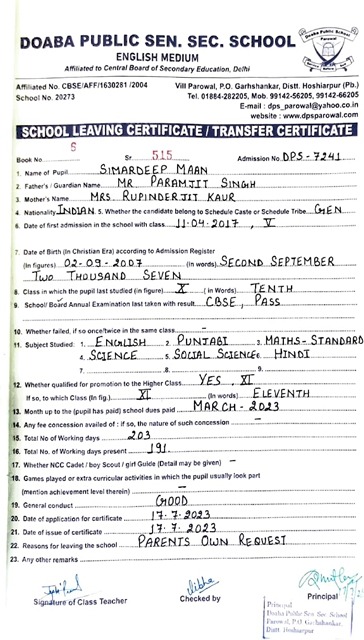 DOABA PUBLIC SEN. SEC. SCHOOL
ENGLISH MEDIUM
Affiliated to Central Board of Secondary Education, Delhi
Affiliated No. CBSE/AFF/1630281 /2004
School No. 20273
Vill Parowal, P.O. Garhshankar, Distt. Hoshiarpur (Pb.)
Tel. 01884-282205, Mob. 99142-56205, 99142-66205
E-mail : dps_parowal@yahoo.co.in
website : www.dpsparowal.com
SCHOOL LEAVING CERTIFICATE / TRANSFER CERTIFICATE
Book No. S Sr. 515 Admission No. DPS-7241
1. Name of Pupil SIMARDEEP MAAN
2. Father's / Guardian Name MR. PARAMJIT SINGH
3. Mother's Name MRS. RUPINDERJIT KAUR
4. Nationality INDIAN 5. Whether the candidate belong to Schedule Caste or Schedule Tribe GEN
6. Date of first admission in the school with class 11-04-2017, V
7. Date of Birth (In Christian Era) according to Admission Register
(in figures) 02-09-2007 (in words) SECOND SEPTEMBER
TWO THOUSAND SEVEN
8. Class in which the pupil last studied (in figure) X ( in Words) TENTH
9. School/ Board Annual Examination last taken with result CBSE, PASS
10. Whether failed, if so once/twice in the same class –
11. Subject Studied : 1. ENGLISH 2. PUNJABI 3. MATHS-STANDARD
4. SCIENCE 5. SOCIAL SCIENCE 6. HINDI
7. 8. 9.
12. Whether qualified for promotion to the Higher Class YES, XI
If so, to which Class (In fig.) XI (In Words) ELEVENTH
13. Month up to the (pupil has paid) school dues paid MARCH-2023
14. Any fee concession availed of : if so, the nature of such concession –
15. Total No of Working days 203
16. Total No. of Working days present 191
17. Whether NCC Cadet / boy Scout / girl Guide (Detail may be given) –
18. Games played or extra curricular activities in which the pupil usually look part
(mention achievement level therein) –
19. General conduct GOOD
20. Date of application for certificate 17.7.2023
21. Date of issue of certificate 17.7.2023
22. Reasons for leaving the school PARENTS OWN REQUEST
23. Any other remarks
Signature of Class Teacher Checked by Principal
Principal
Doaba Public Sen. Sec. School
Parowal, P.O. Garhshankar,
Distt. Hoshiarpur